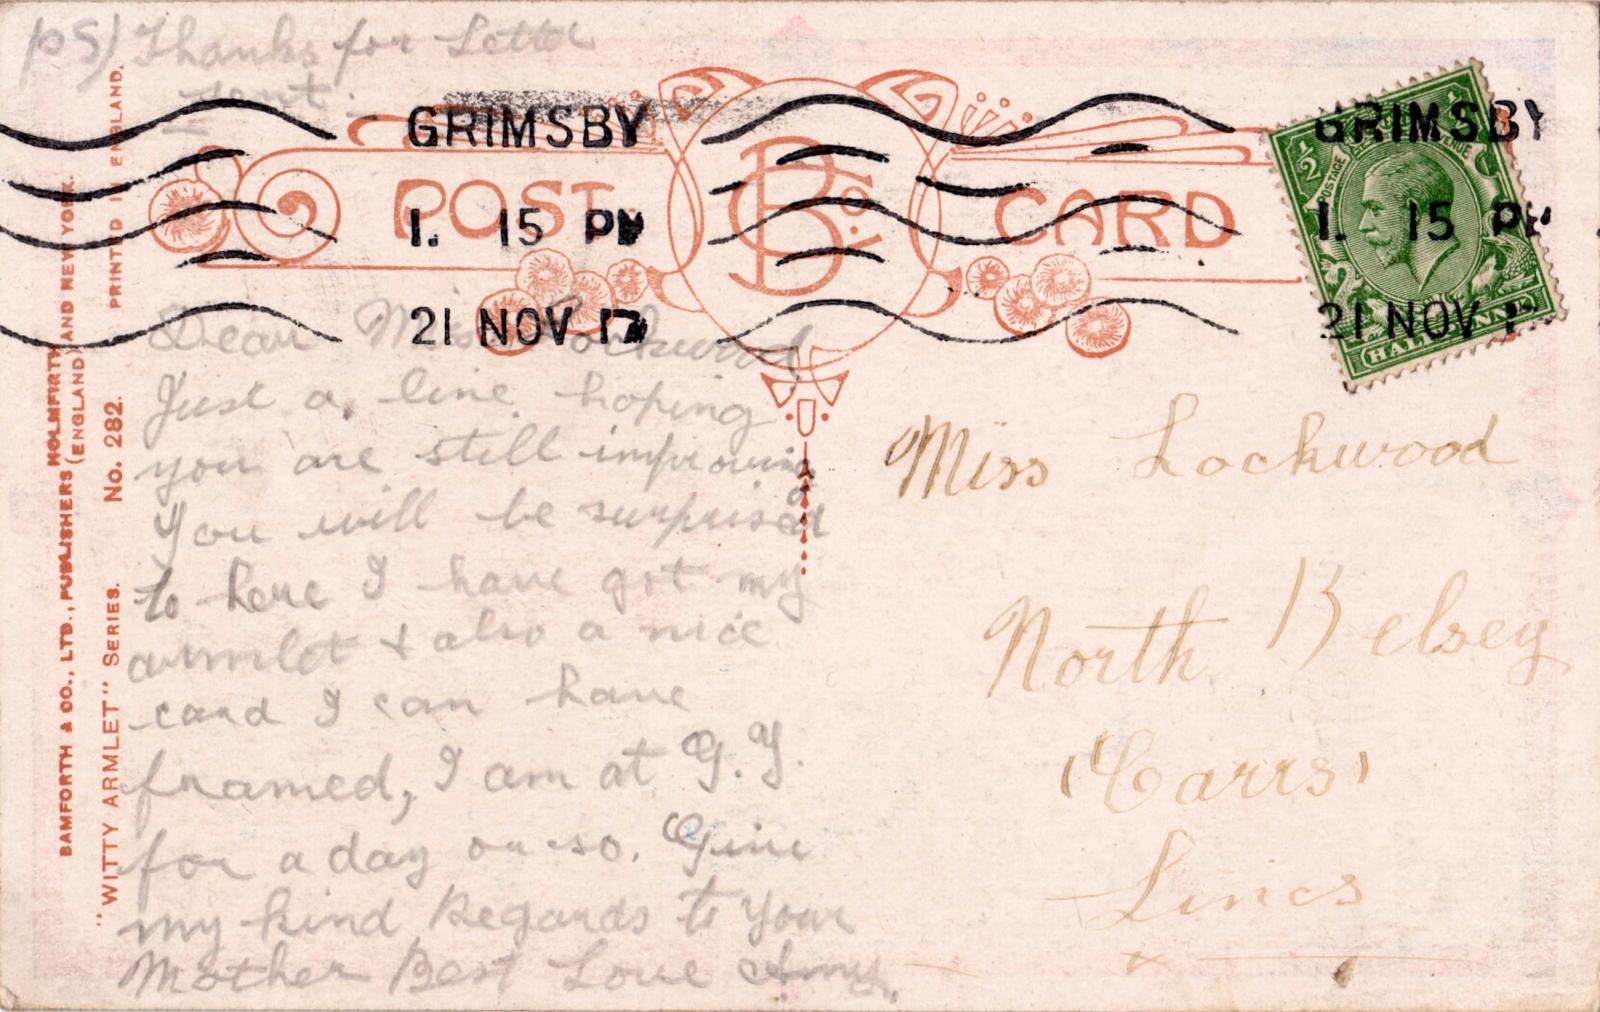 PS) Thanks for Letter
sent.
GRIMSBY
1. 15 PM
21 NOV 17
GRIMSBY
1. 15 PM
21 NOV 1
POST CARD
B & Co. Ld.
½
POSTAGE REVENUE
½
HALFPENNY
BAMFORTH & CO., LTD., PUBLISHERS HOLMFIRTH (ENGLAND) AND NEW YORK.
"WITTY ARMLET" SERIES. No. 282. PRINTED IN ENGLAND.
Dear Miss Lockwood
Just a line hoping
you are still improving
You will be surprised
to here I have got my
armlet + also a nice
card I can have
framed, I am at G.Y.
for a day or so. Give
my kind Regards to your
Mother Best Love Amy.
Miss Lockwood
North Kelsey
(Carrs)
Lincs